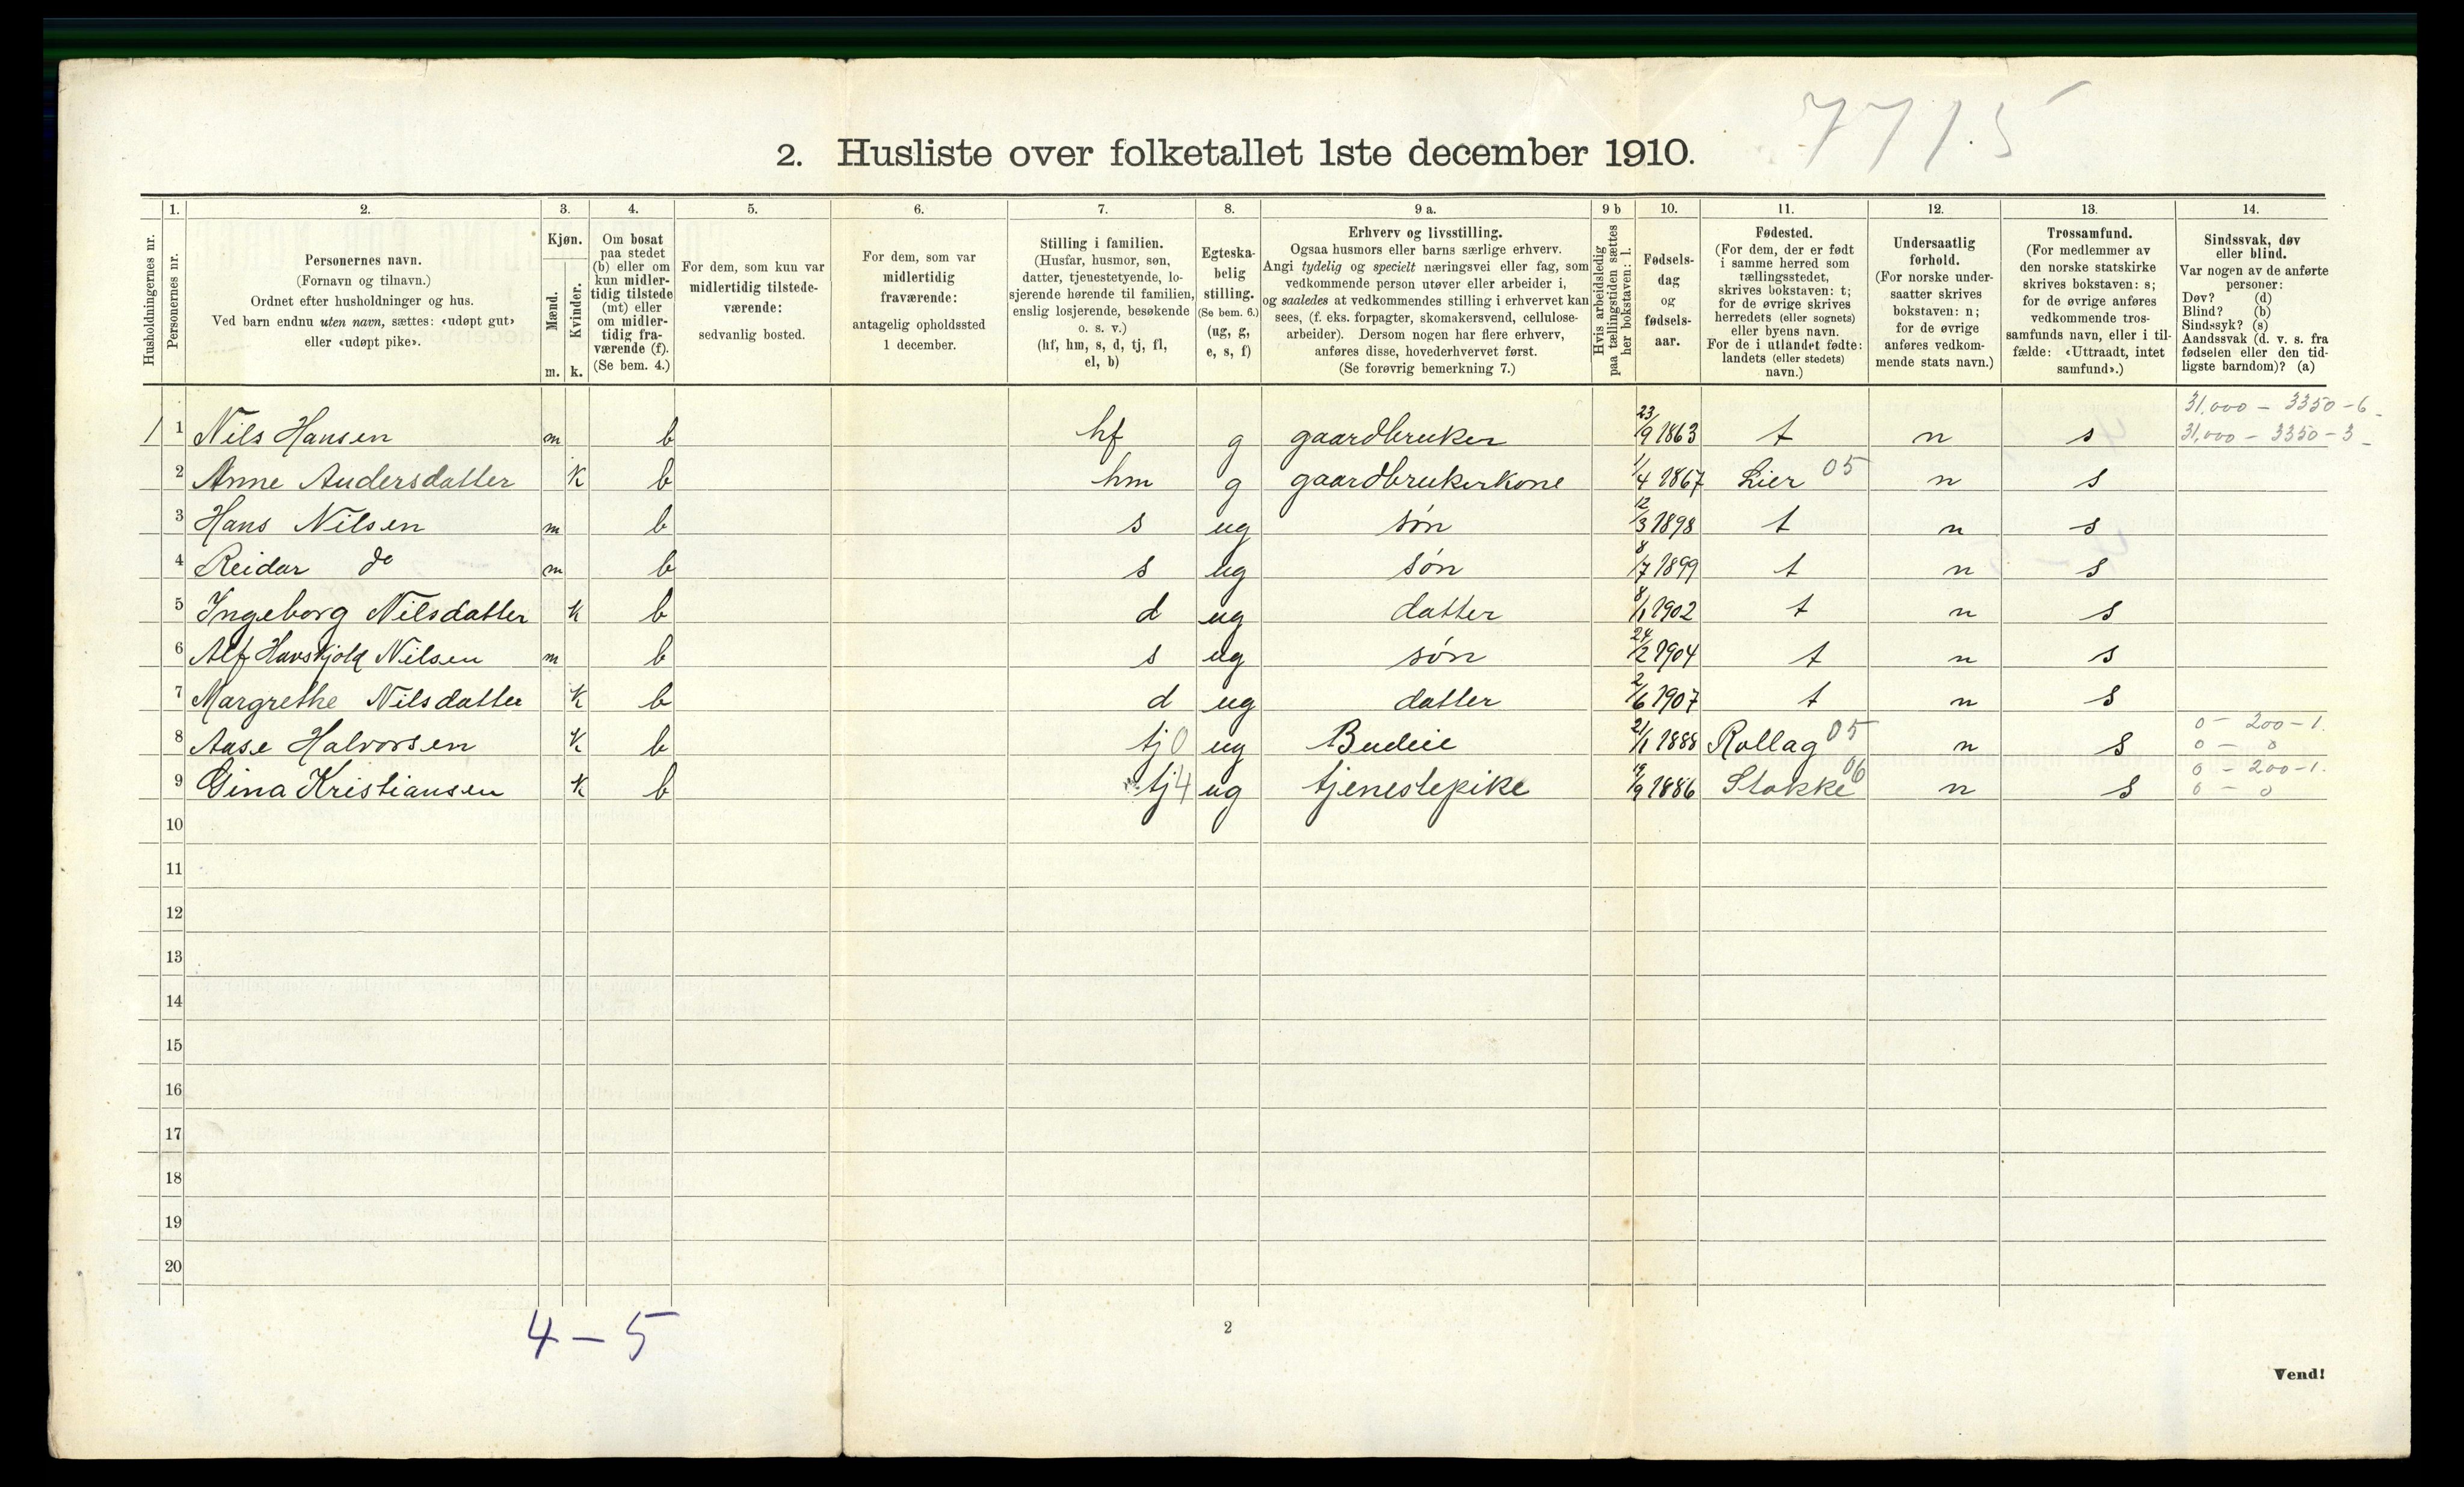 77 1.5
2. Husliste over folketallet 1ste december 1910.
Husholdningernes nr.
1.
Personernes nr.
2.
Personernes navn.
(Fornavn og tilnavn.)
Ordnet efter husholdninger og hus.
Ved barn endnu uten navn, sættes: «udøpt gut»
eller «udøpt pike».
3.
Kjøn.
Mænd.
Kvinder.
m. k.
4.
Om bosat
paa stedet
(b) eller om
kun midler-
tidig tilstede
(mt) eller
om midler-
tidig fra-
værende (f).
(Se bem. 4.)
5.
For dem, som kun var
midlertidig tilstede-
værende:
sedvanlig bosted.
6.
For dem, som var
midlertidig
fraværende:
antagelig opholdssted
1 december.
7.
Stilling i familien.
(Husfar, husmor, søn,
datter, tjenestetyende, lo-
sjerende hørende til familien,
enslig losjerende, besøkende
o. s. v.)
(hf, hm, s, d, tj, fl,
el, b)
8.
Egteska-
belig
stilling.
(Se bem. 6.)
(ug, g,
e, s, f)
9 a.
Erhverv og livsstilling.
Ogsaa husmors eller barns særlige erhverv.
Angi tydelig og specielt næringsvei eller fag, som
vedkommende person utøver eller arbeider i,
og saaledes at vedkommendes stilling i erhvervet kan
sees, (f. eks. forpagter, skomakersvend, cellulose-
arbeider). Dersom nogen har flere erhverv,
anføres disse, hovederhvervet først.
(Se forøvrig bemerkning 7.)
9 b
Hvis arbeidsledig
paa tællingstiden sættes
her bokstaven: l.
10.
Fødsels-
dag
og
fødsels-
aar.
11.
Fødested.
(For dem, der er født
i samme herred som
tællingsstedet,
skrives bokstaven: t;
for de øvrige skrives
herredets (eller sognets)
eller byens navn.
For de i utlandet fødte:
landets (eller stedets)
navn.)
12.
Undersaatlig
forhold.
(For norske under-
saatter skrives
bokstaven: n;
for de øvrige
anføres vedkom-
mende stats navn.)
13.
Trossamfund.
(For medlemmer av
den norske statskirke
skrives bokstaven: s;
for de øvrige anføres
vedkommende tros-
samfunds navn, eller i til-
fælde: «Uttraadt, intet
samfund».)
14.
Sindssvak, døv
eller blind.
Var nogen av de anførte
personer:
Døv? (d)
Blind? (b)
Sindssyk? (s)
Aandssvak (d. v. s. fra
fødselen eller den tid-
ligste barndom)? (a)
31,000 - 3350 - 6
1 1 Nils Hansen m b hf g gaardbruker 23/9 1863 t n s 31,000 - 3350 - 3
2 Anne Andersdatter k b hm g gaardbrukerkone 1/4 1867 Lier 05 n s
3 Hans Nilsen m b s ug søn 12/3 1898 t n s
4 Reidar do m b s ug søn 8/7 1899 t n s
5 Ingeborg Nilsdatter k b d ug datter 8/1 1902 t n s
6 Alf Havskjold Nilsen m b s ug søn 24/2 1904 t n s
7 Margrethe Nilsdatter k b d ug datter 2/6 1907 t n s
0 - 200 - 1.
8 Aase Halvorsen k b tj 0 ug Budeie 21/1 1888 Rollag 05 n s 0 - 0
0 - 200 - 1.
9 Gina Kristiansen k b tj 4 ug tjenestepike 19/9 1886 Stokke 06 n s 0 - 0
10
11
12
13
14
15
16
17
18
19
20
4 - 5
2
Vend!